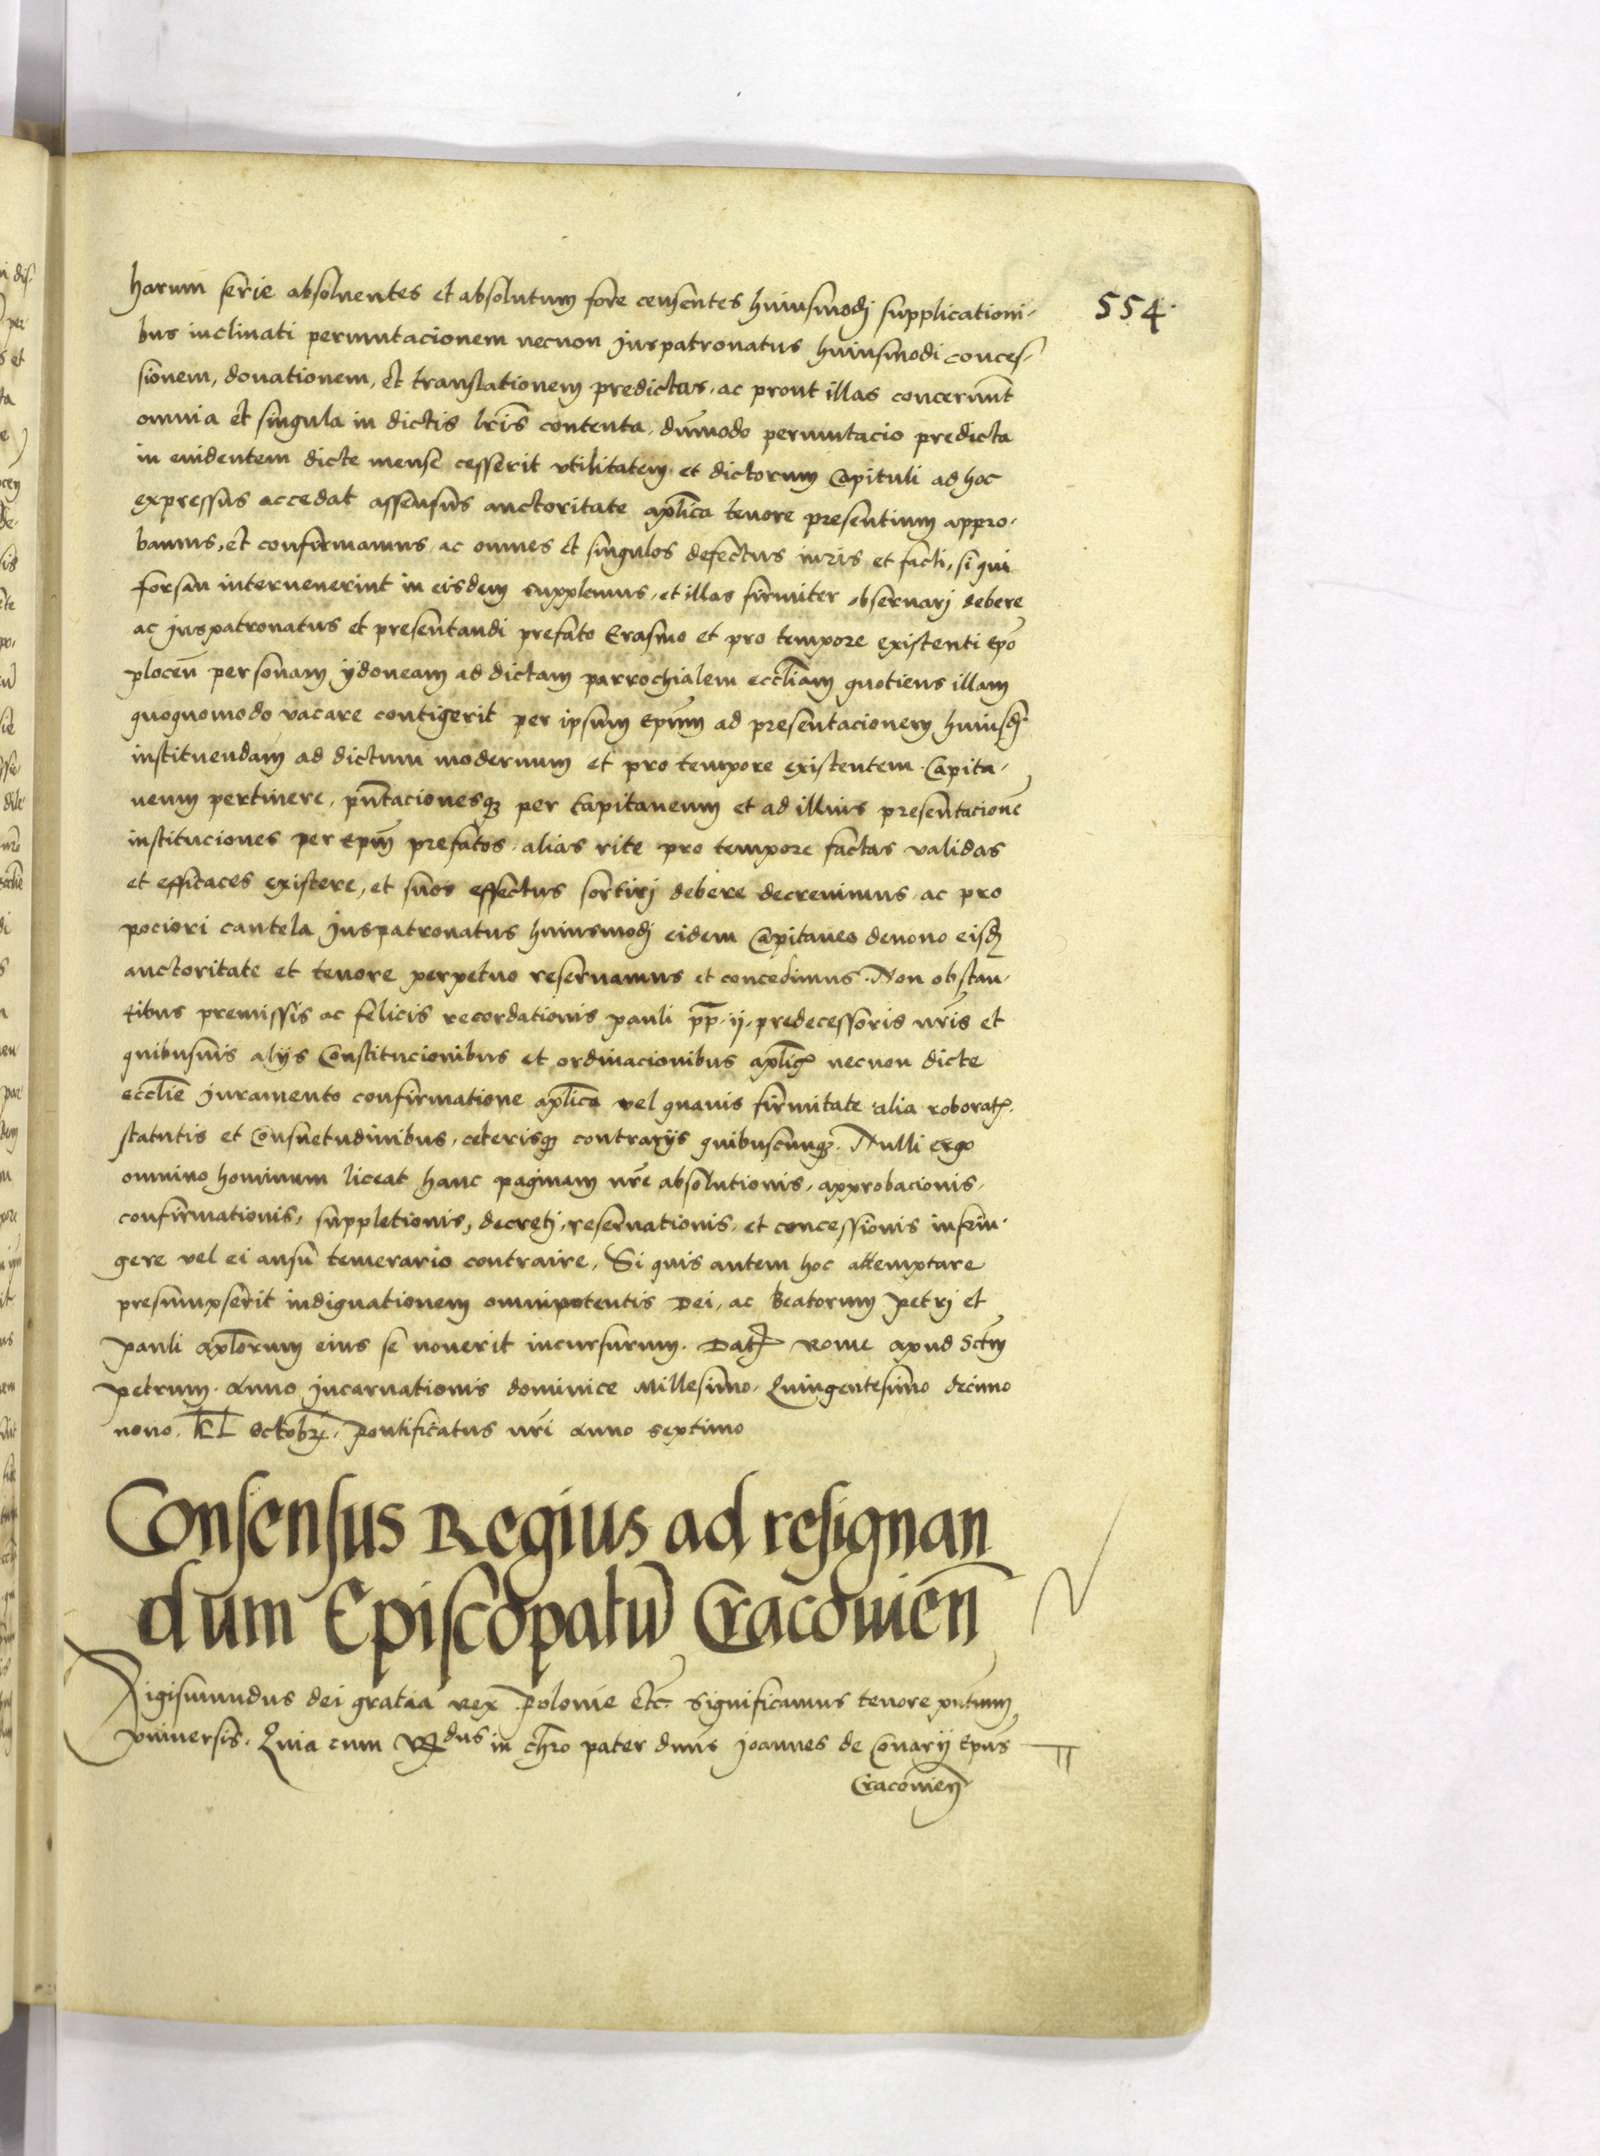 554.
harum serie absoluentes et absolutum fore censentes huiusmodj supplicationi-
bus inclinati permutacionem necnon juspatronatus huiusmodi conces-
sionem, donationem, et translationem predictas, ac prout illas concernūt
omnia et singula in dictis lr̄is contenta, dūmodo permutacio predicta
in euidentem dicte mense cesserit vtilitatem et dictorum Capituli ad hoc
expressus accedat assensus auctoritate aplīca tenore presentium appro-
bamus, et confirmamus, ac omnes et singulos defectus iuris et facti, si qui
forsan interuenerint in eisdem supplemus, et illas firmiter obseruarj debere
ac juspatronatus et presentandi prefato Erasmo et pro tempore existenti ep̄o
plocen̄ personam ydoneam ad dictam parrochialem eccl̄iam quotiens illam
quoquomodo vacare contigerit per ipsum ep̄um ad presentacionem huiusd̄j
instituendam ad dictum modernum et pro tempore existentem Capita-
neum pertinere, pn̄tacionesq̄ per Capitaneum et ad illius presentacionē
instituciones per ep̄m prefatos, alias rite pro tempore factas validas
et efficaces existere, et suos effectus sortirj debere decreuimus, ac pro
pociori cautela juspatronatus huiusmodj eidem Capitaneo denouo eisd̄
auctoritate et tenore perpetuo reseruamus et concedimus. Non obstan-
tibus premissis ac felicis recordationis pauli pp̄. ij. predecessoris nr̄is et
quibusuis alijs Constitucionibus et ordinacionibus aplīc̄ necnon dicte
eccl̄ie juramento confirmatione aplīca vel quauis firmitate alia roborat̄.
statutis et Consuetudinibus, ceterisq̄ contrarijs quibuscunq̄. Nulli ergo
omnino hominum liceat hanc paginam nr̄e absolutionis, approbacionis,
confirmationis, suppletionis, decretj, reseruationis, et concessionis infrin-
gere vel ei ausu temerario contraire, Si quis autem hoc attemptare
presumpserit indignationem omnipotentis Dei, ac Beatorum petrj et
pauli apl̄orum eius se nouerit incursurum. Dat̄ Rome apud Sctm̄
petrum. Anno jncarnationis dominice Millesimo, Quingentesimo decimo
nono. Kl̄ Octobr̄. pontificatus nr̄i anno septimo
Consensus Regius ad resignan
dum Episcopatū Cracouien̄
Sigismundus dei gratia Rex Polonie etc. significamus tenore pn̄tium
vniuersis. Quia cum Rdus in chr̄o pater dn̄us joannes de Conarij Ep̄us
Cracouien̄